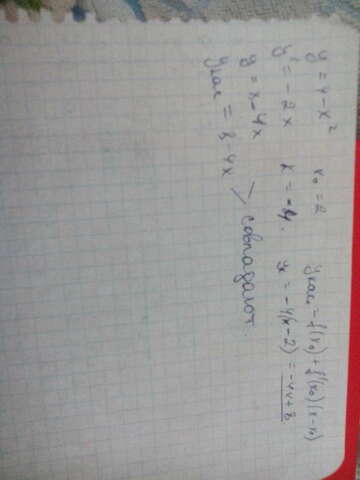 y = 4 - x² x₀ = 2 yкас = f(x₀) + f'(x₀)(x - x₀)
y' = -2x k = -4. = -4(x - 2) = -4x + 8
y = 8 - 4x
yкас = 8 - 4x > совпадают.